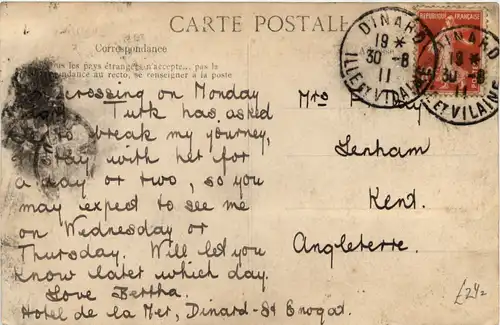 CARTE POSTALE
Correspondance
Tous les pays étrangers n'acceptent pas la
correspondance au recto, se renseigner à la poste
RÉPUBLIQUE FRANÇAISE
DINARD
19 *
30 -8
11
ILLE ET VILAINE
DINARD
19 *
30 -8
11
ILLE ET VILAINE
crossing on Monday
Turk has asked
to break my journey,
stay with her for
a day or two, so you
may expect to see me
on Wednesday or
Thursday. Will let you
know later which day.
Love Bertha.
Hotel de la Mer, Dinard-St Enogat.
Mrs
Lenham
Kent.
Angleterre.